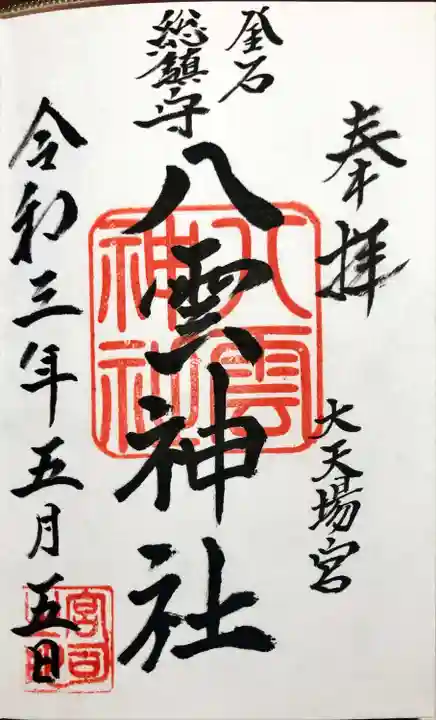 奉拝
大天場宮
釜石
総鎮守
八雲神社
八雲
神社
令和三年五月五日
宮司